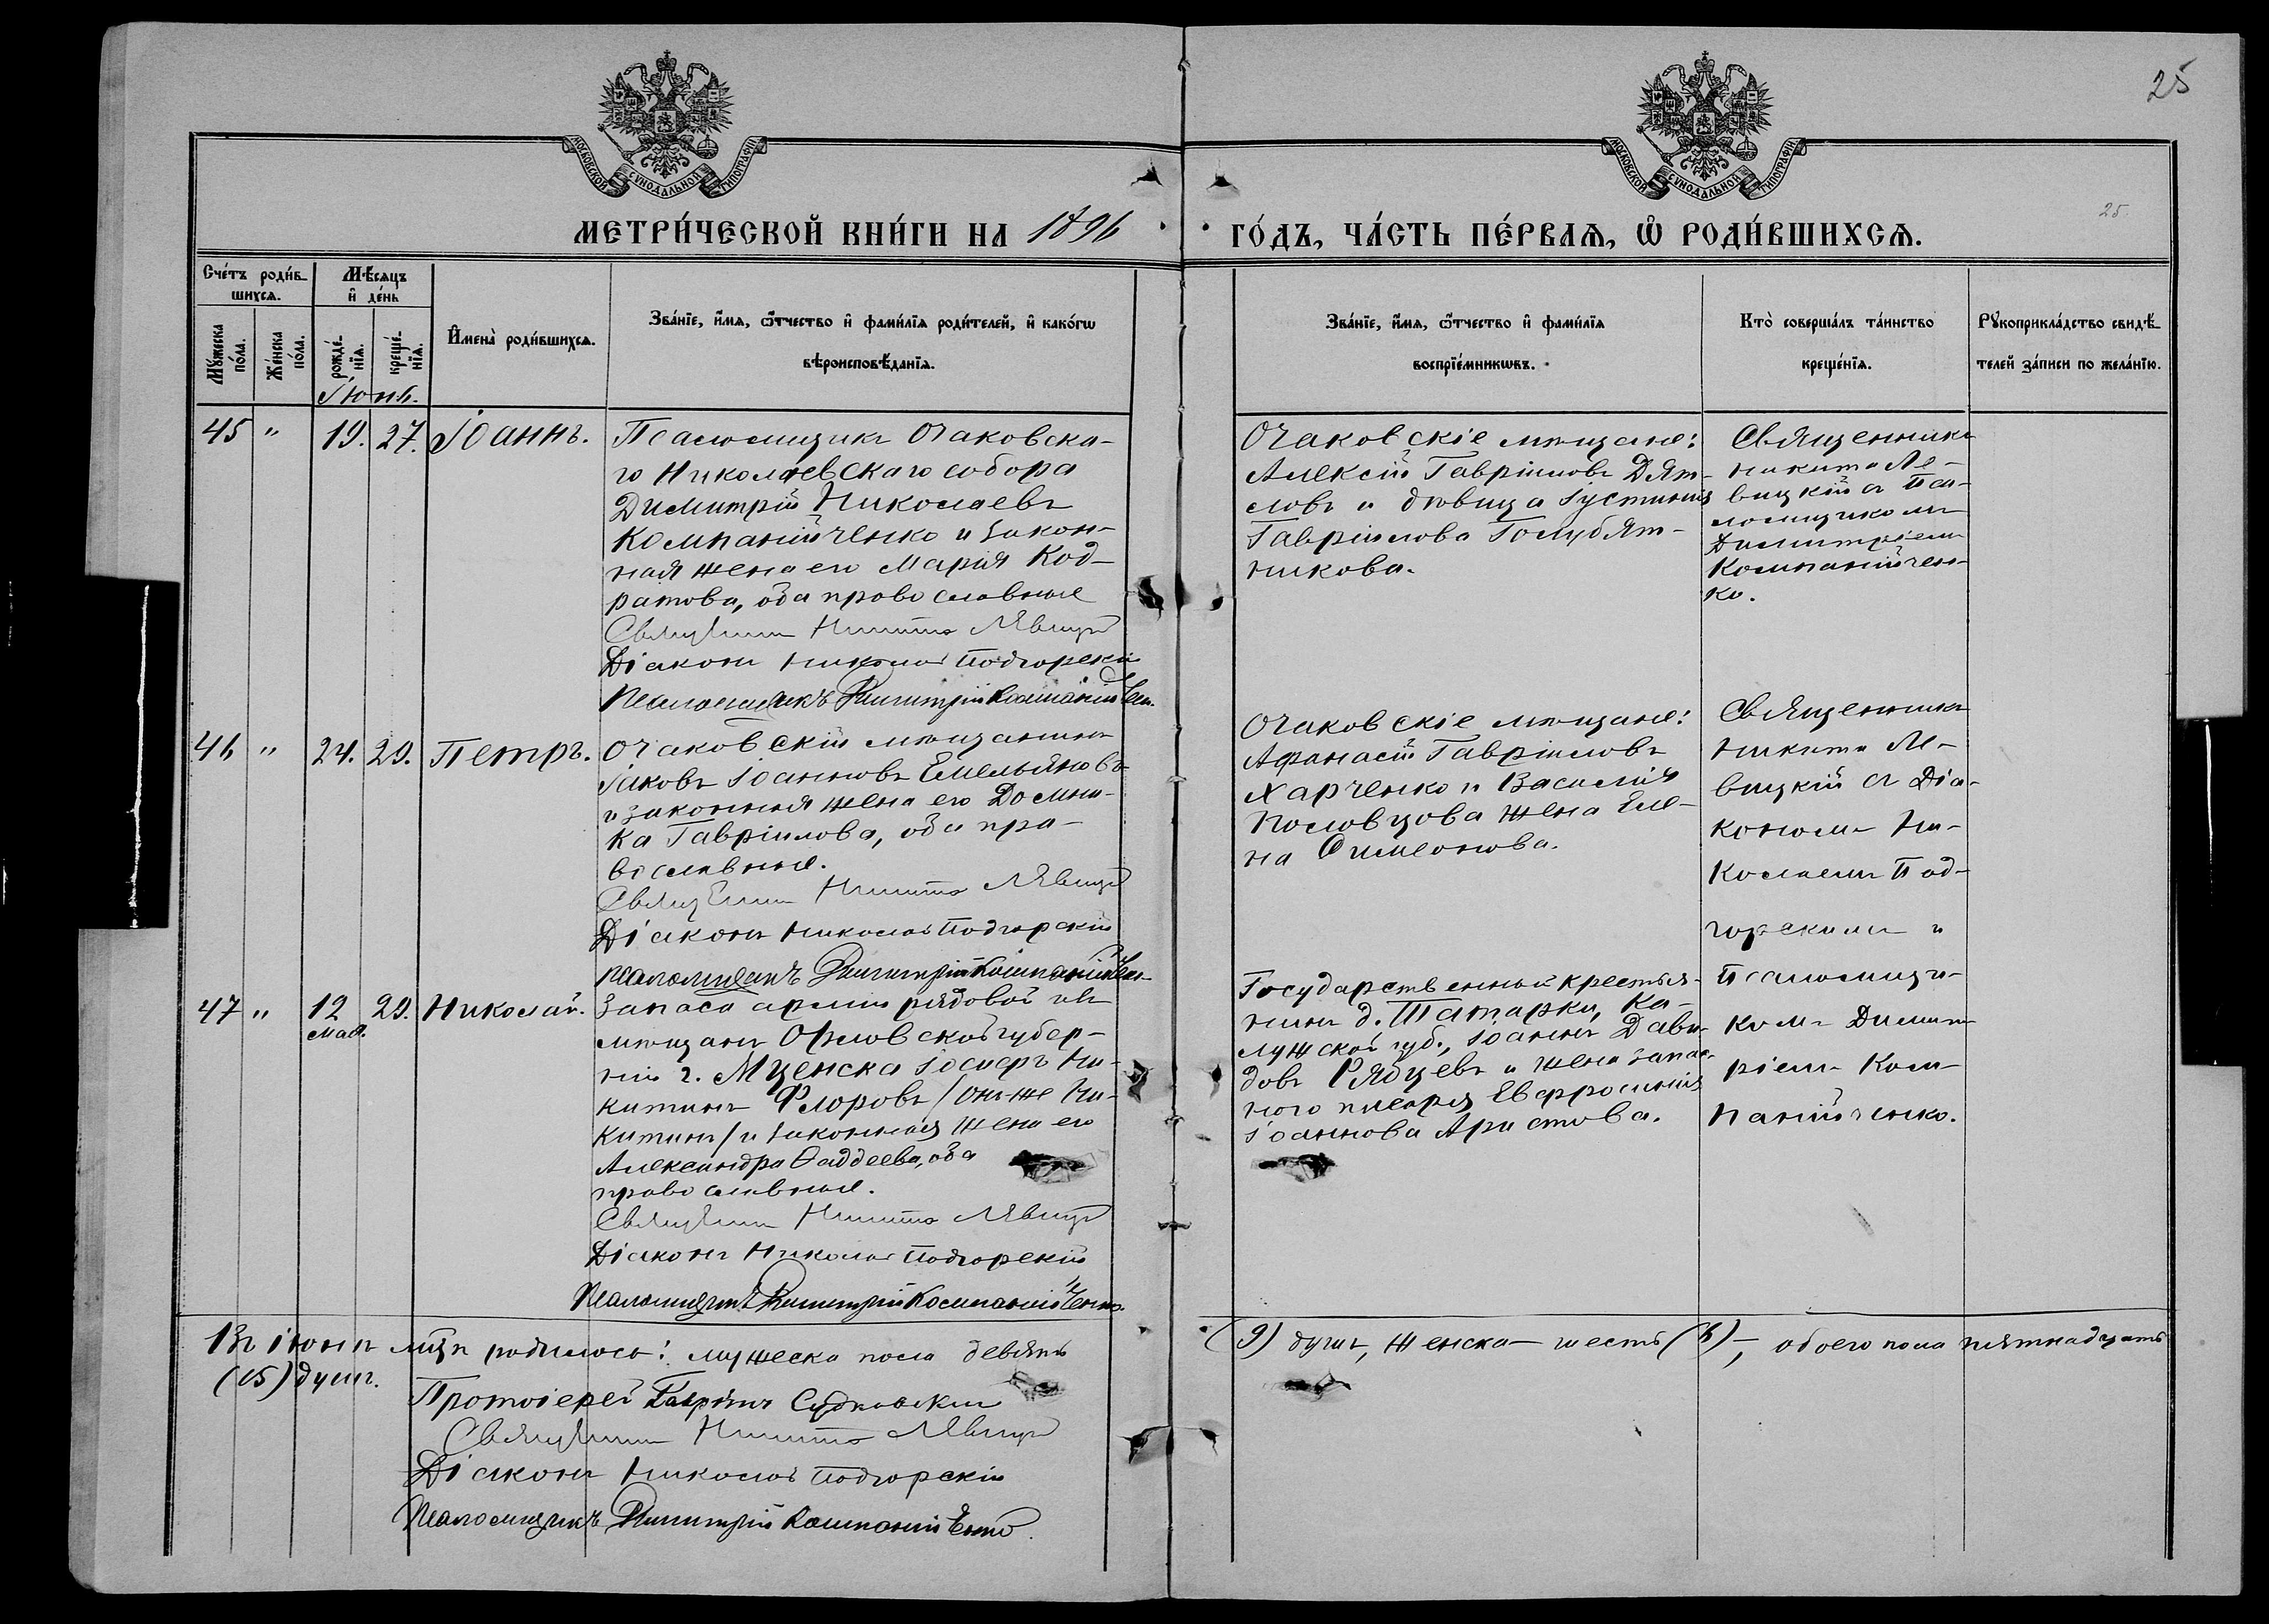 25
МОСКОВСКОЙ СУНОДАЛЬНОЙ ТИПОГРАФІИ
МОСКОВСКОЙ СУНОДАЛЬНОЙ ТИПОГРАФІИ
25.
МЕТРИ́ЧЕСКОЙ КНИ́ГИ НА 1896
ГО́ДЪ, ЧА́СТЬ ПЕ́РВАѦ, Ѡ РОДИ́ВШИХСѦ.
Сче́тъ роди́в-
шихсѧ.
Му́жеска по́ла.
Же́нска по́ла.
Мѣ́сѧцъ
и҆ де́нь
рожде́-
нїѧ.
креще́-
нїѧ.
И҆мена̀ роди́вшихсѧ.
Зва́нїе, и҆́мѧ, ѻ҆́тчество и҆ фами́лїѧ роди́телей, и҆ како́гѡ
вѣроисповѣ́данїѧ.
Зва́нїе, и҆́мѧ, ѻ҆́тчество и҆ фами́лїѧ
воспрїе́мникѡвъ.
Кто̀ соверша́лъ та́инство
креще́нїѧ.
Рꙋкоприкла́дство свидѣ́-
телей за́писи по жела́нїю.
Іюнь.
45 " 19. 27. Іоаннъ.
Псаломщикъ Очаковска-
го Николаевскаго собора
Димитрій Николаевъ
Компанійченко и закон-
ная жена его Марія Код-
ратова, оба православные
Священникъ Никита Левицкій
Діаконъ Николай Подгорскій
Псаломщикъ Димитрій Компанійчен.
Очаковскіе мѣщане:
Алексій Гавріиловъ Дят-
ловъ и дѣвица Іустинія
Гавріилова Голубят-
никова.
Священникъ
Никита Ле-
вицкій съ Пса-
ломщикомъ
Димитріемъ
Компанійчен-
ко.
46 " 24. 29. Петръ.
Очаковскій мѣщанинъ
Іаковъ Іоанновъ Емельяновъ
и законная жена его Домни-
ка Гавріилова, оба пра-
вославные.
Священникъ Никита Левицкій
Діаконъ Николай Подгорскій
Псаломщикъ Димитрій Компанійчен-
Очаковскіе мѣщане:
Афанасій Гавріиловъ
Харченко и Василія
Половцова жена Еле-
на Симеонова.
Священникъ
Никита Ле-
вицкій съ Діа-
кономъ Ни-
колаемъ Под-
горскимъ и
Псаломщи-
комъ Димит-
ріемъ Ком-
панійченко.
47 " 12 мая. 29. Николай.
Запаса арміи рядовой изъ
мѣщанъ Орловской губер-
ніи г. Мценска Іосифъ Ни-
китинъ Флоровъ /онъ-же Ни-
китинъ/ и законная жена его
Александра Фаддеева, оба
православные.
Священникъ Никита Левицкій
Діаконъ Николай Подгорскій
Псаломщикъ Димитрій Компанійченко.
Государственный крестья-
нинъ д. Татарки, Ка-
лужской губ., Іоаннъ Дави-
довъ Рябцевъ и жена запас-
ного писаря Евфросинія
Іоаннова Аристова.
Въ іюнѣ мцѣ родилось: мужеска пола девять
(9) душъ, женска – шесть (6) –, обоего пола пятнадцать
(15) душъ.
Протоіерей Гавріилъ Судковскій
Священникъ Никита Левицкій
Діаконъ Николай Подгорскій
Псаломщикъ Димитрій Компанійченко.